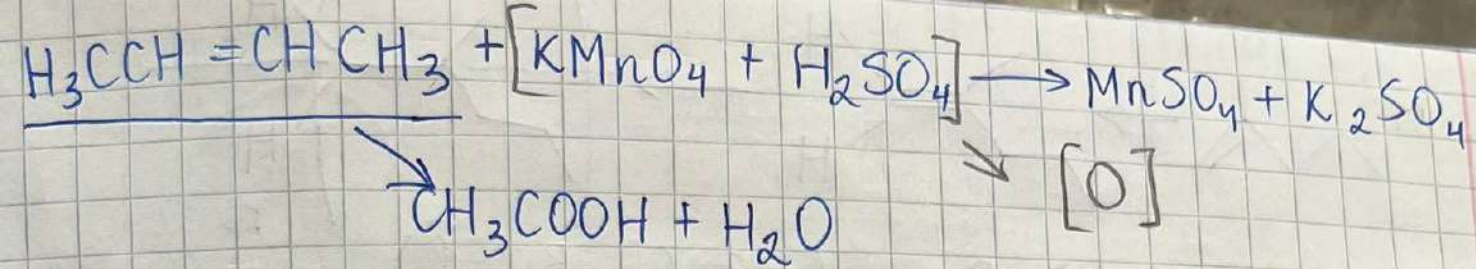 H₃CCH=CHCH₃ + [KMnO₄ + H₂SO₄] → MnSO₄ + K₂SO₄
↘ CH₃COOH + H₂O ↘ [O]